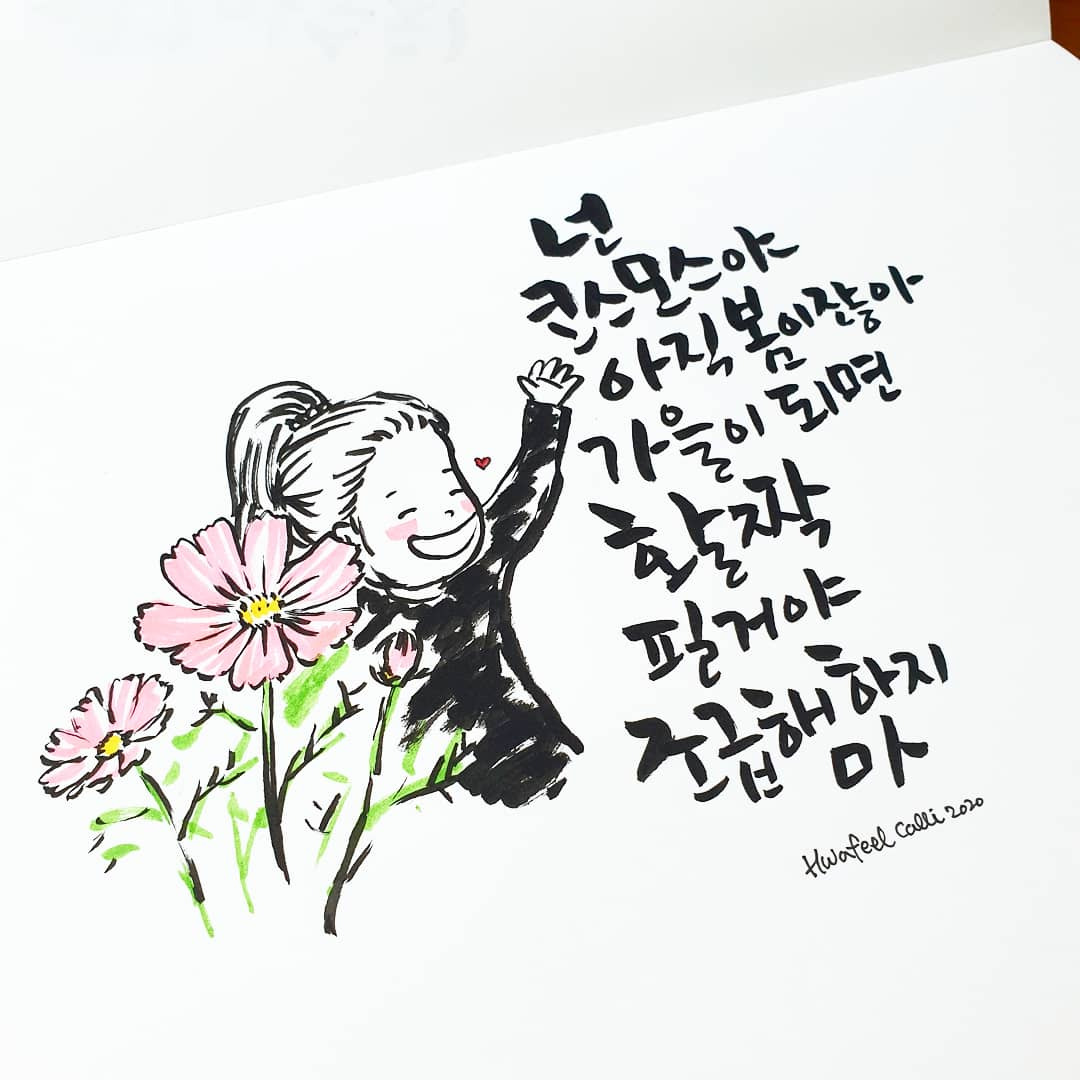 넌
코스모스야
아직 봄이잖아
가을이 되면
활짝
필거야
조급해하지
마
Hwafeel Calli 2020